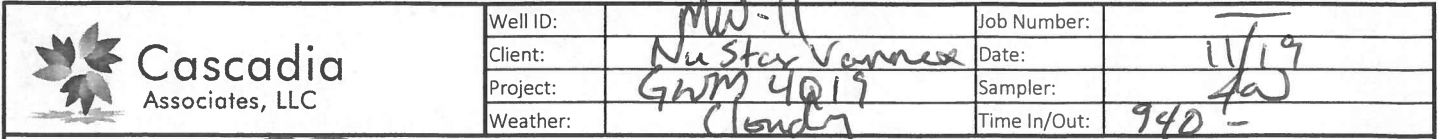 Cascadia
Associates, LLC
Well ID: MW-11 Job Number: —
Client: NuStar Vannex Date: 11/19
Project: GWM 4Q19 Sampler:
Weather: Cloudy Time In/Out: 940 -